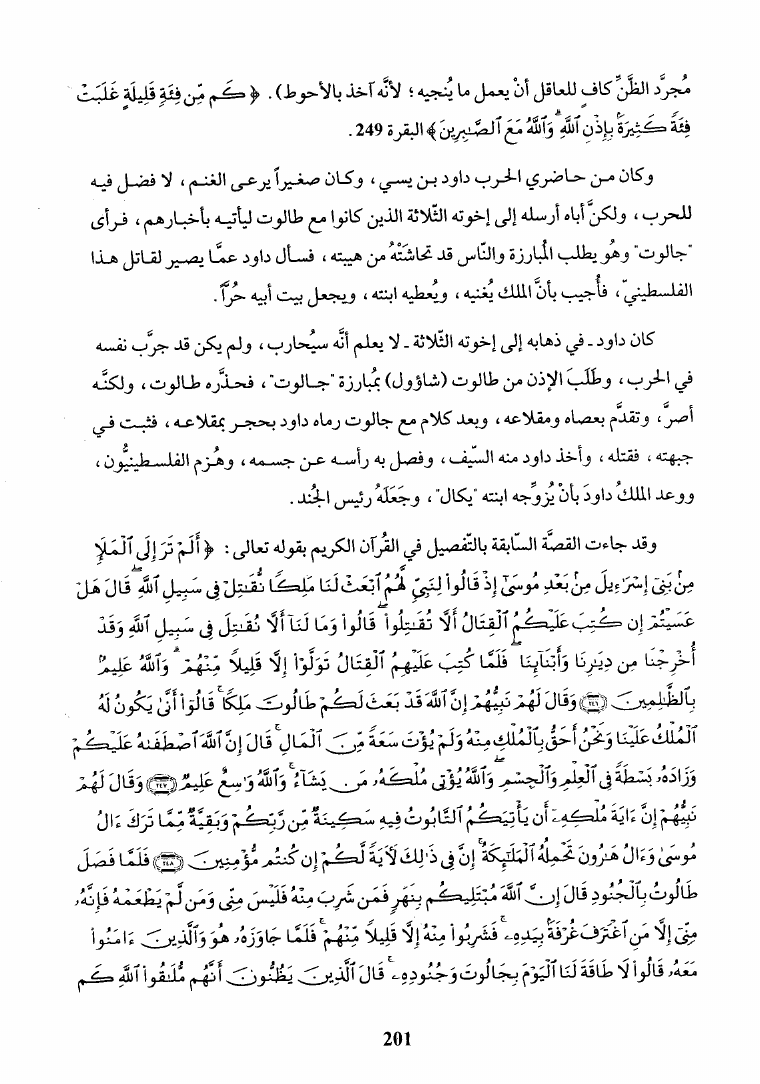 مُجرَّد الظَّنِّ كافٍ للعاقل أنْ يعمل ما يُنجيه؛ لأنَّه آخذ بالأحوط). ﴿ كَم مِّن فِئَةٍ قَلِيلَةٍ غَلَبَتْ
فِئَةً كَثِيرَةً بِإِذْنِ ٱللَّهِ ۗ وَٱللَّهُ مَعَ ٱلصَّـٰبِرِينَ ﴾ البقرة 249.
وكان من حاضري الحرب داود بن يسي، وكان صغيراً يرعى الغنم، لا فضل فيه
للحرب، ولكنَّ أباه أرسله إلى إخوته الثّلاثة الذين كانوا مع طالوت ليأتيه بأخبارهم، فرأى
"جالوت" وهُو يطلب المُبارزة والنّاس قد تحاشَتْهُ من هيبته، فسأل داود عمَّا يصير لقاتل هذا
الفلسطينيّ، فأُجيب بأنَّ الملك يُغنيه، ويُعطيه ابنته، ويجعل بيت أبيه حُرّاً.
كان داود ـ في ذهابه إلى إخوته الثّلاثة ـ لا يعلم أنَّه سيُحارب، ولم يكن قد جرَّب نفسه
في الحرب، وطَلَبَ الإذن من طالوت (شاؤول) بمُبارزة "جالوت"، فحذَّره طالوت، ولكنَّه
أصرَّ، وتقدَّم بعصاه ومقلاعه، وبعد كلام مع جالوت رماه داود بحجر بمقلاعه، فثبت في
جبهته، فقتله، وأخذ داود منه السّيف، وفصل به رأسه عن جسمه، وهُزم الفلسطينيُّون،
ووعد الملكُ داودَ بأنْ يُزوِّجه ابنته "يكال"، وجَعَلَهُ رئيس الجُند.
وقد جاءت القصَّة السّابقة بالتّفصيل في القُرآن الكريم بقوله تعالى: ﴿ أَلَمْ تَرَ إِلَى ٱلْمَلَإِ
مِنۢ بَنِىٓ إِسْرَٰٓءِيلَ مِنۢ بَعْدِ مُوسَىٰٓ إِذْ قَالُوا۟ لِنَبِىٍّ لَّهُمُ ٱبْعَثْ لَنَا مَلِكًا نُّقَـٰتِلْ فِى سَبِيلِ ٱللَّهِ ۖ قَالَ هَلْ
عَسَيْتُمْ إِن كُتِبَ عَلَيْكُمُ ٱلْقِتَالُ أَلَّا تُقَـٰتِلُوا۟ ۖ قَالُوا۟ وَمَا لَنَآ أَلَّا نُقَـٰتِلَ فِى سَبِيلِ ٱللَّهِ وَقَدْ
أُخْرِجْنَا مِن دِيَـٰرِنَا وَأَبْنَآئِنَا ۖ فَلَمَّا كُتِبَ عَلَيْهِمُ ٱلْقِتَالُ تَوَلَّوْا۟ إِلَّا قَلِيلًا مِّنْهُمْ ۗ وَٱللَّهُ عَلِيمٌۢ
بِٱلظَّـٰلِمِينَ ﴿٢٤٦﴾ وَقَالَ لَهُمْ نَبِيُّهُمْ إِنَّ ٱللَّهَ قَدْ بَعَثَ لَكُمْ طَالُوتَ مَلِكًا ۚ قَالُوٓا۟ أَنَّىٰ يَكُونُ لَهُ
ٱلْمُلْكُ عَلَيْنَا وَنَحْنُ أَحَقُّ بِٱلْمُلْكِ مِنْهُ وَلَمْ يُؤْتَ سَعَةً مِّنَ ٱلْمَالِ ۚ قَالَ إِنَّ ٱللَّهَ ٱصْطَفَىٰهُ عَلَيْكُمْ
وَزَادَهُۥ بَسْطَةً فِى ٱلْعِلْمِ وَٱلْجِسْمِ ۖ وَٱللَّهُ يُؤْتِى مُلْكَهُۥ مَن يَشَآءُ ۚ وَٱللَّهُ وَٰسِعٌ عَلِيمٌ ﴿٢٤٧﴾ وَقَالَ لَهُمْ
نَبِيُّهُمْ إِنَّ ءَايَةَ مُلْكِهِۦٓ أَن يَأْتِيَكُمُ ٱلتَّابُوتُ فِيهِ سَكِينَةٌ مِّن رَّبِّكُمْ وَبَقِيَّةٌ مِّمَّا تَرَكَ ءَالُ
مُوسَىٰ وَءَالُ هَـٰرُونَ تَحْمِلُهُ ٱلْمَلَـٰٓئِكَةُ ۚ إِنَّ فِى ذَٰلِكَ لَـَٔايَةً لَّكُمْ إِن كُنتُم مُّؤْمِنِينَ ﴿٢٤٨﴾ فَلَمَّا فَصَلَ
طَالُوتُ بِٱلْجُنُودِ قَالَ إِنَّ ٱللَّهَ مُبْتَلِيكُم بِنَهَرٍ فَمَن شَرِبَ مِنْهُ فَلَيْسَ مِنِّى وَمَن لَّمْ يَطْعَمْهُ فَإِنَّهُۥ
مِنِّىٓ إِلَّا مَنِ ٱغْتَرَفَ غُرْفَةًۢ بِيَدِهِۦ ۚ فَشَرِبُوا۟ مِنْهُ إِلَّا قَلِيلًا مِّنْهُمْ ۚ فَلَمَّا جَاوَزَهُۥ هُوَ وَٱلَّذِينَ ءَامَنُوا۟
مَعَهُۥ قَالُوا۟ لَا طَاقَةَ لَنَا ٱلْيَوْمَ بِجَالُوتَ وَجُنُودِهِۦ ۚ قَالَ ٱلَّذِينَ يَظُنُّونَ أَنَّهُم مُّلَـٰقُوا۟ ٱللَّهِ كَم
201